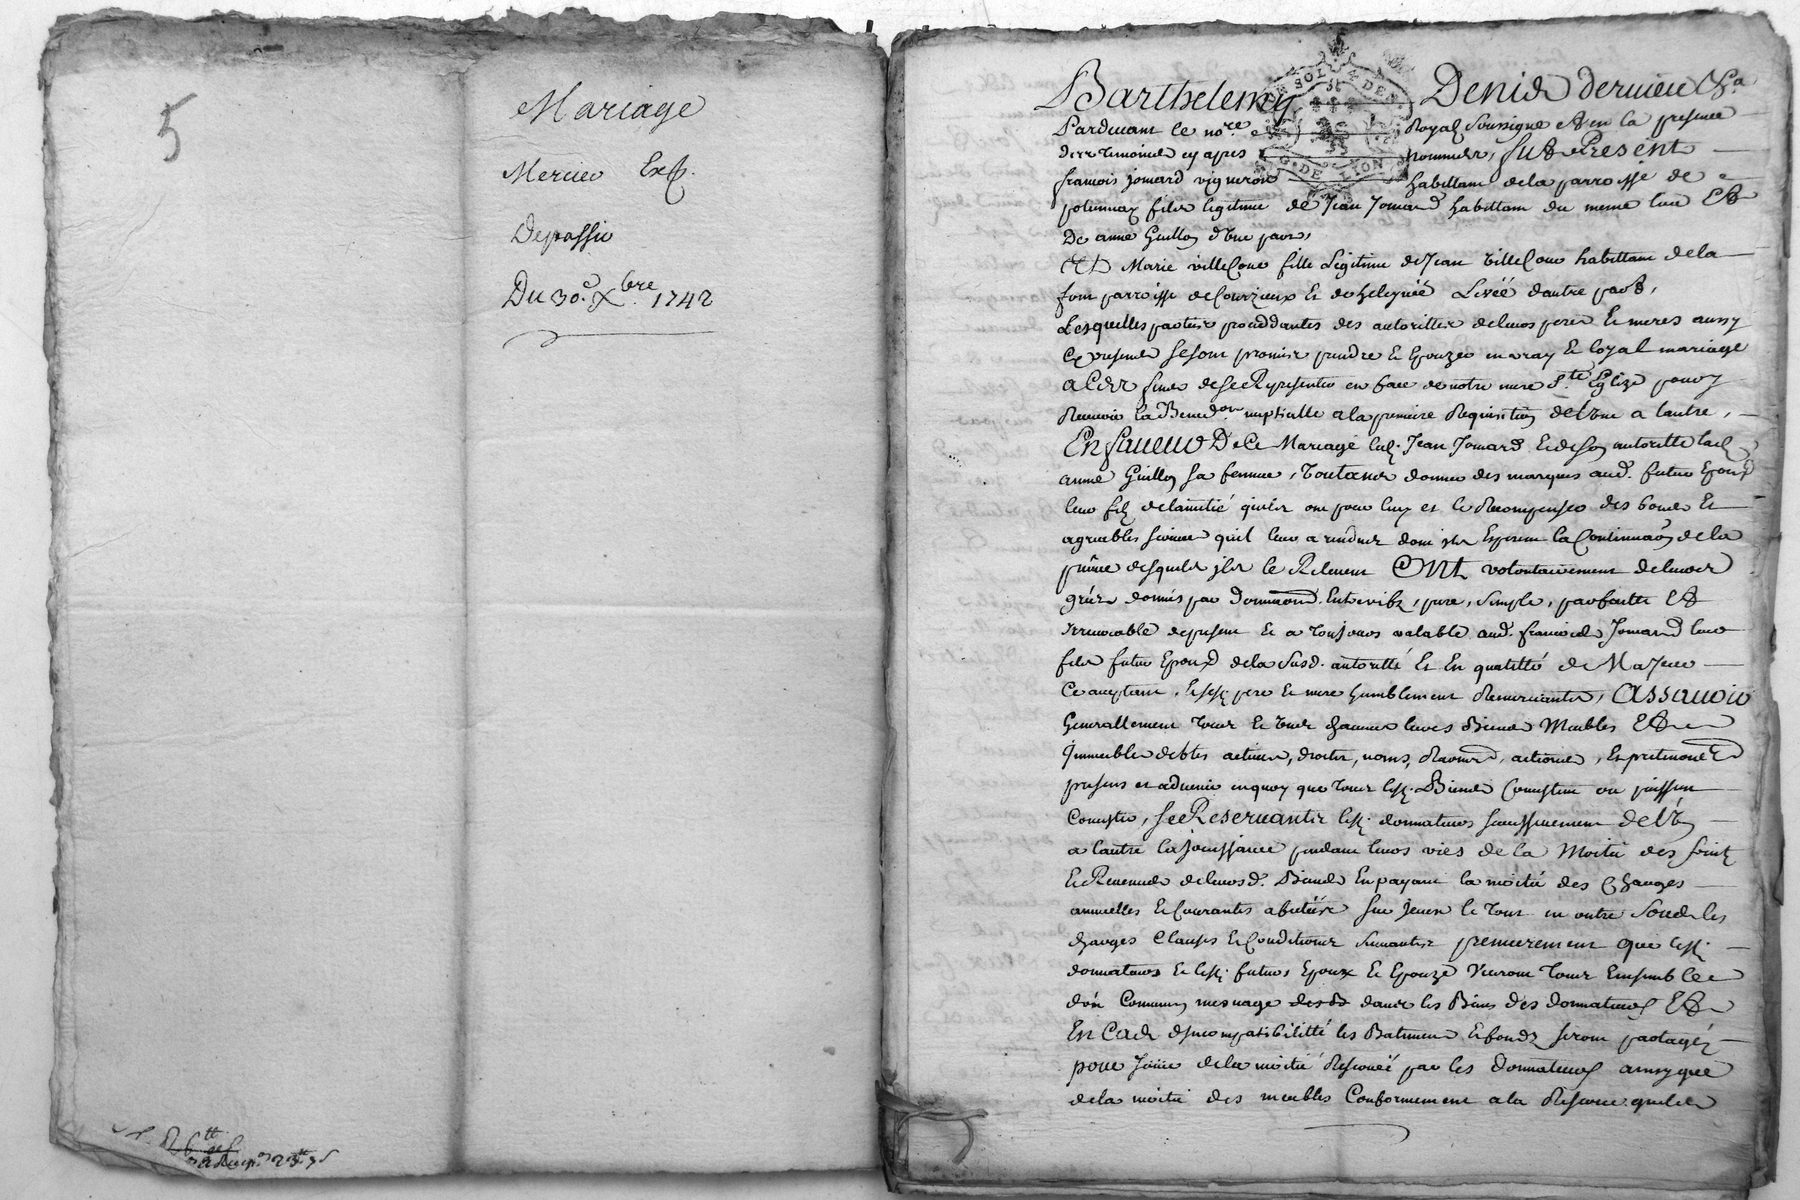 5
Mariage
Mercier Exp.
Depassio
Du 30.e Xbre. 1742
Barthelemy Denis dernieu
SOL 4 DEN
G. DE LION
Pardevant le nore. Royal soussigné et en la presence
des temoins cy apres nommés, fut Present
françois jomard vigneron habittant de la parroisse de
polionnay fils legitime de Jean Jomard habittant du meme lieu Et
De anne Guillon d'Une part,
Et Marie ville fille Legitime de Jean ville habittant de la
parroisse de Courzieux et de d'autre part,
Lesquelles parties proceddantes des autorittés de leurs peres et meres aussy
Cy presents se sont promis prendre et Epouzer en vray et loyal mariage
a Ces fins de se Representer en face de notre mere Ste. Eglize pour y
Recevoir la Benedon nuptialle a la premiere Requisition de l'Une a l'autre,
En faveur De Ce Mariage led. Jean Jomard et de son autoritté lad.
anne Guillon sa femme, voulants donner des marques aud. futur Epoux
leur fils de l'amitié qu'ils ont pour luy et le Recompenser des bons et
agreables services qu'il leur a rendus dont ils Esperent la Continuaon de la
preuve desquels ils le Relevent Ont volontairement de leurs
grés donnés par Donnaon. Entrevifs, pure, simple, parfaitte Et
Irrevocable depresent et a toujours valable aud. françois Jomard leur
fils futur Epoux de la susd. autoritté Et En qualitté de Majeur
Ce acceptant, Lesd. pere et mere humblement Remerciants, Assavoir
Generallement tous et uns chacuns leurs Biens Meubles Et
Immeubles debtes actives, droits, noms, Raons, actions, Et pretentions
presens et advenir en quoy que tous lesd. Biens Consistent ou puissent
Consister, se Reservants lesd. donnateurs successivement de l'Un
a l'autre la jouissance pendant leurs vies de la Moitié des fruits
et Revenus de leursd. Biens En payant la moitié des Charges
annuelles et Courantes sur Iceux le tout en outre Sous les
charges Clauses et Conditions suivantes premierement que lesd.
donnateurs et lesd. futurs Epoux et Epouze vivront tous Ensemble
d'un Commun mesnage dans les Biens des donnateurs Et
En Cas d'incompatibilitté les Batimens et fonds seront partagés
pour Jouir de la moitié Reservée par les Donnateurs ainsy que
de la moitié des meubles Conformement a la Reserve qu'ils